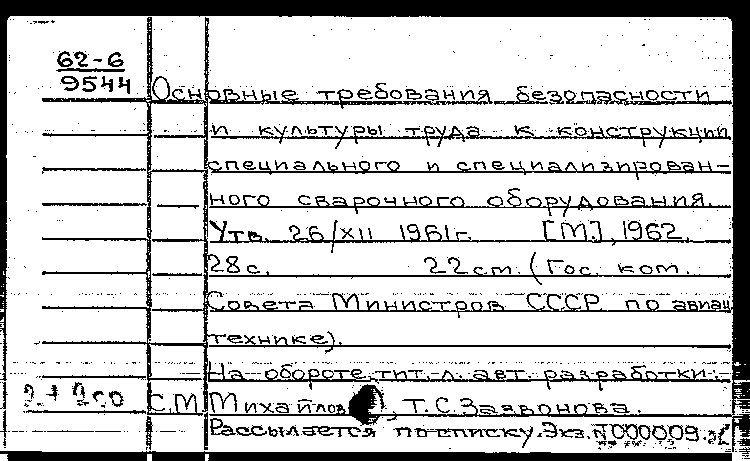 62-6
9544
Основные требования безопасности
и культуры труда к конструкции
специального и специализирован-
ного сварочного оборудования.
Утв. 26/XII 1961г. [М], 1962.
28с. 22см. (Гос. ком.
Совета Министров СССР по авиац
технике).
На обороте тит. л. авт. разработки:
С.М. Михайлов, Т.С. Заявонова.
Рассылается по списку. Экз. №000009